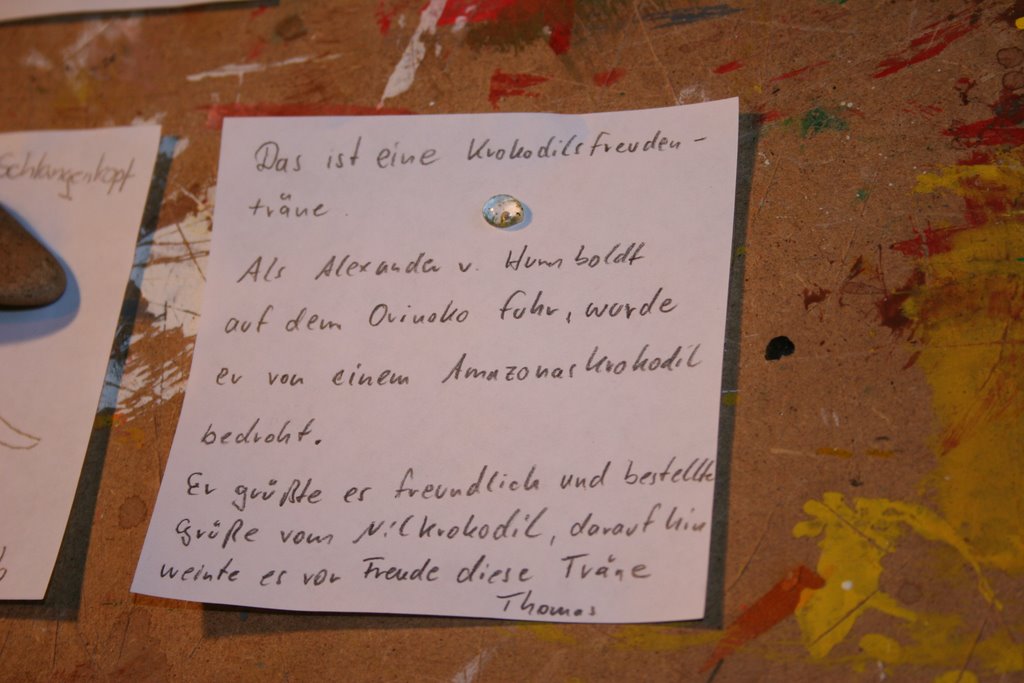 Schlangenkopf
Das ist eine Krokodilsfreuden-
träne
Als Alexander v. Humboldt
auf dem Orinoko fuhr, wurde
er von einem Amazonaskrokodil
bedroht.
Er grüßte es freundlich und bestellte
Grüße vom Nilkrokodil, daraufhin
weinte es vor Freude diese Träne
Thomas